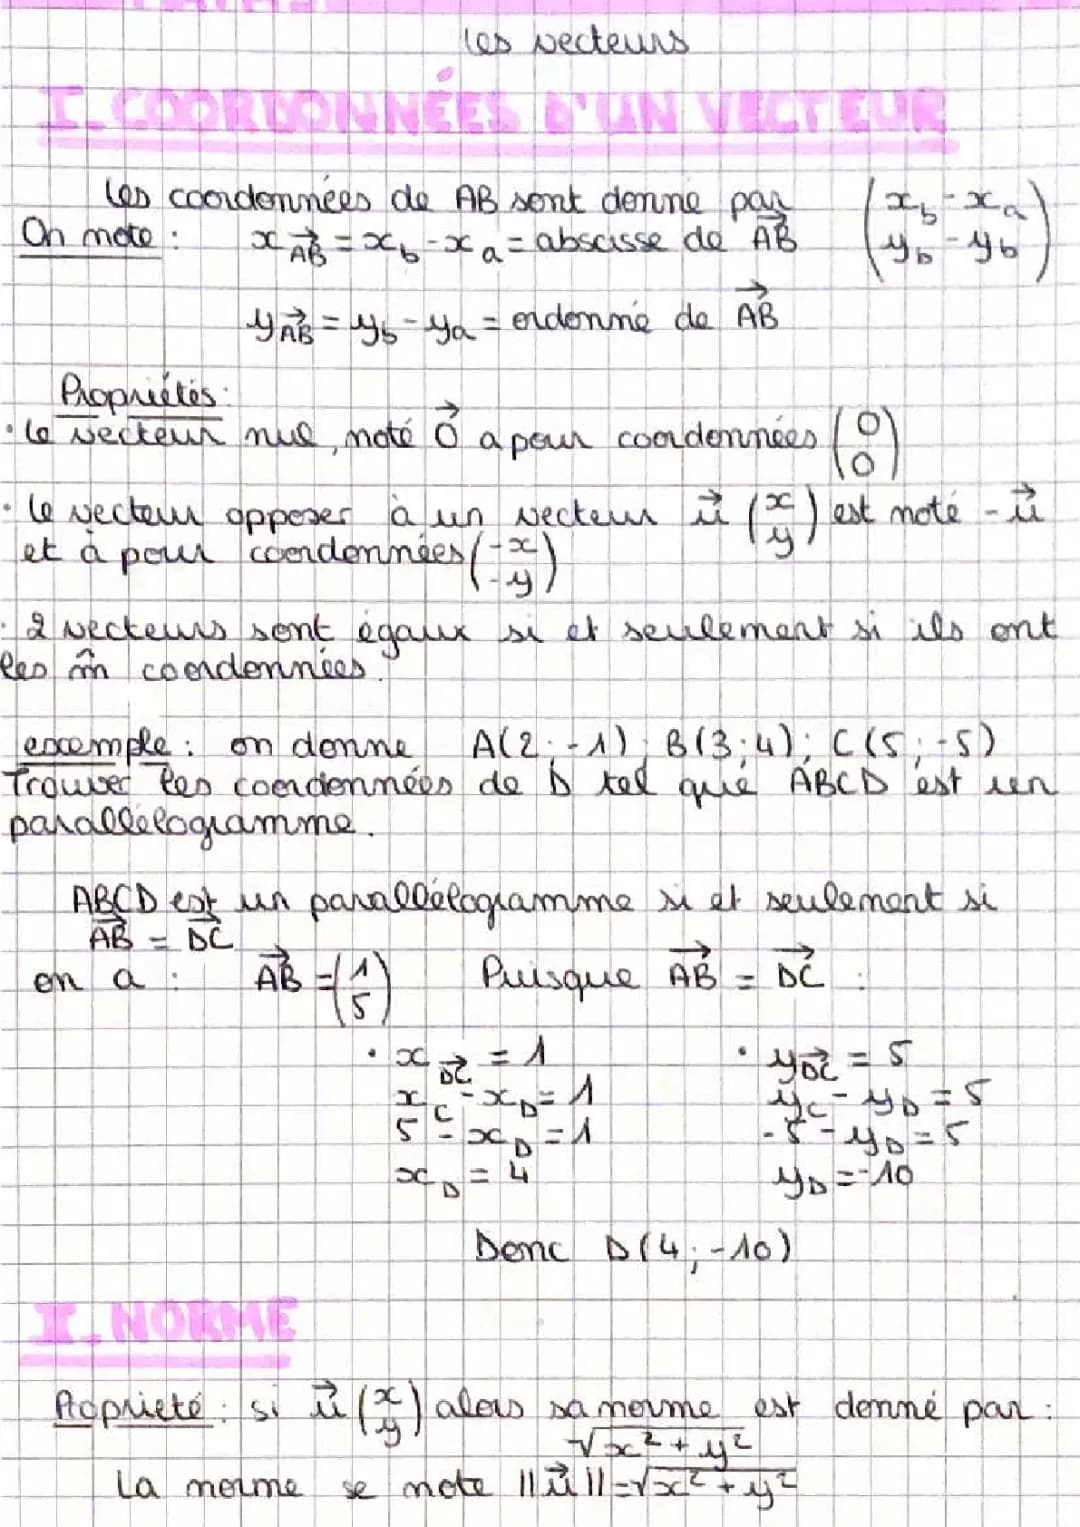 les vecteurs
I. COORDONNÉES D'UN VECTEUR
les coordonnées de AB sont donne par (x_b - x_a / y_b - y_b)
On note : x_{\vec{AB}} = x_b - x_a = abscisse de \vec{AB}
y_{\vec{AB}} = y_b - y_a = ordonné de \vec{AB}
Propriétés :
• le vecteur nul, noté \vec{0} a pour coordonnées (0 / 0)
• le vecteur opposer à un vecteur \vec{u} (x / y) est noté -\vec{u}
et à pour coordonnées (-x / -y)
• 2 vecteurs sont égaux si et seulement si ils ont
les m̂ coordonnées.
exemple : on donne A(2;-1); B(3;4); C(5;-5)
Trouver les coordonnées de D tel que ABCD est un
parallélogramme.
ABCD est un parallélogramme si et seulement si
\vec{AB} = \vec{DC}
on a : \vec{AB} = (1 / 5) Puisque \vec{AB} = \vec{DC} :
• x_{\vec{DC}} = 1 • y_{\vec{DC}} = 5
x_C - x_D = 1 y_C - y_D = 5
5 - x_D = 1 -5 - y_D = 5
x_D = 4 y_D = -10
Donc D(4;-10)
II. NORME
Propriété : si \vec{u} (x / y) alors sa norme est donné par :
√x² + y²
La norme se note ||\vec{u}|| = √x² + y²